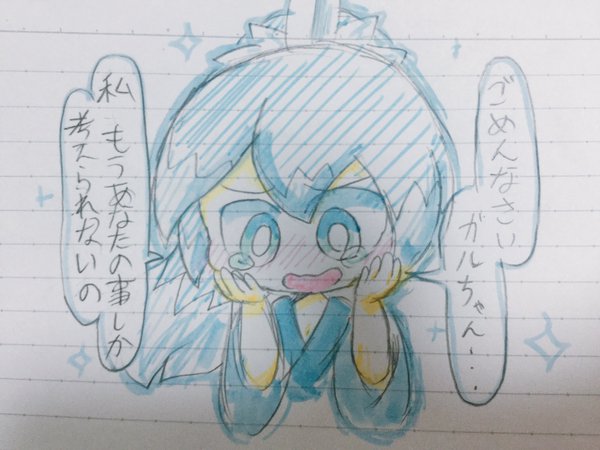 ごめんなさい
ガルちゃん...
私 もうあなたの事しか
考えられないの